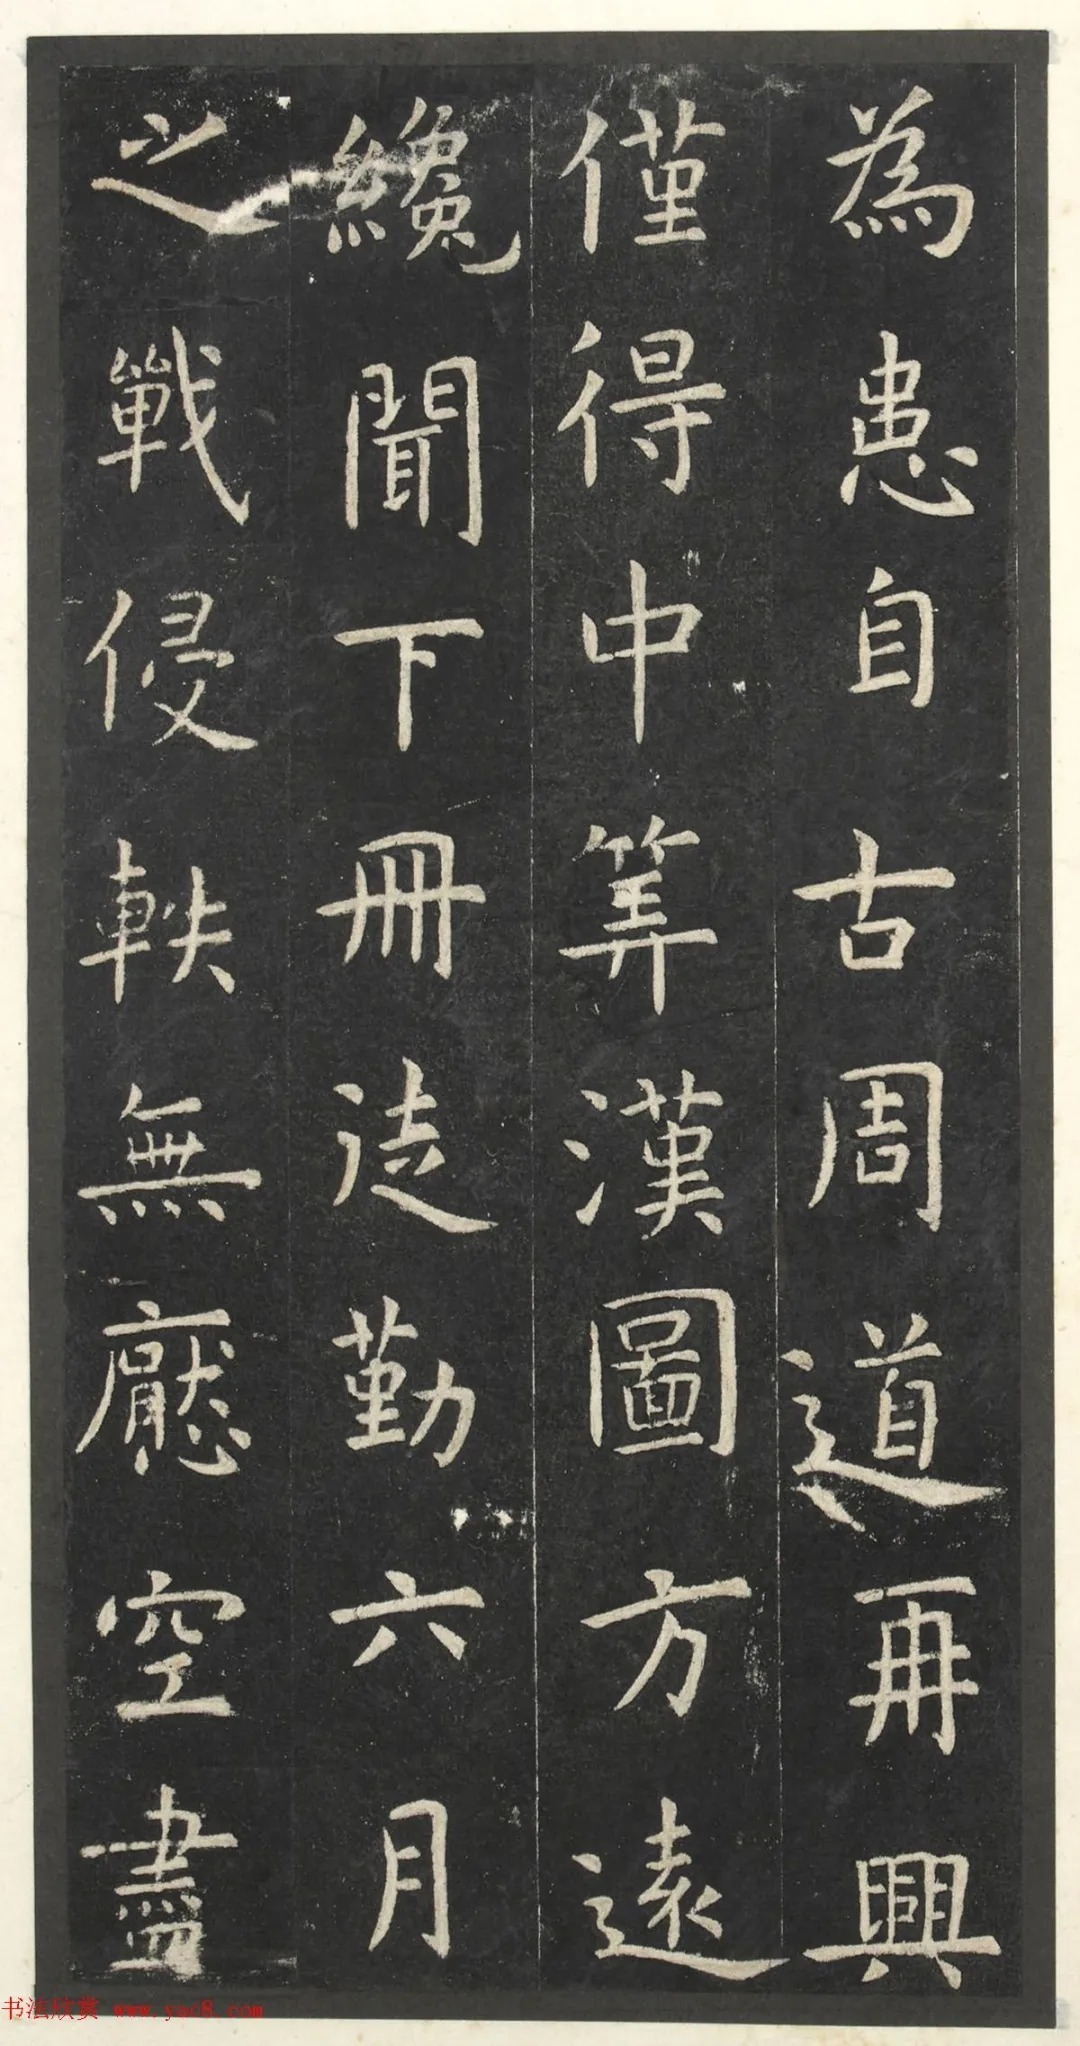 為患自古周道再興
僅得中筭漢圖方遠
纔聞下冊徒勤六月
之戰侵軼無懕空盡
书法欣赏 www.yac8.com